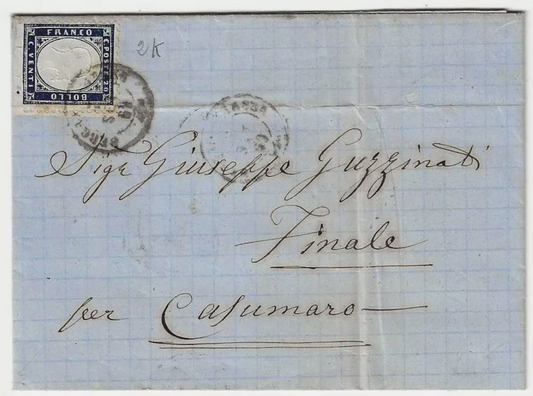 FRANCO
C. POSTE 20
C. VENTI
BOLLO
2K
MASSA
Sigr Giuseppe Guzzinati
Finale
per Casumaro